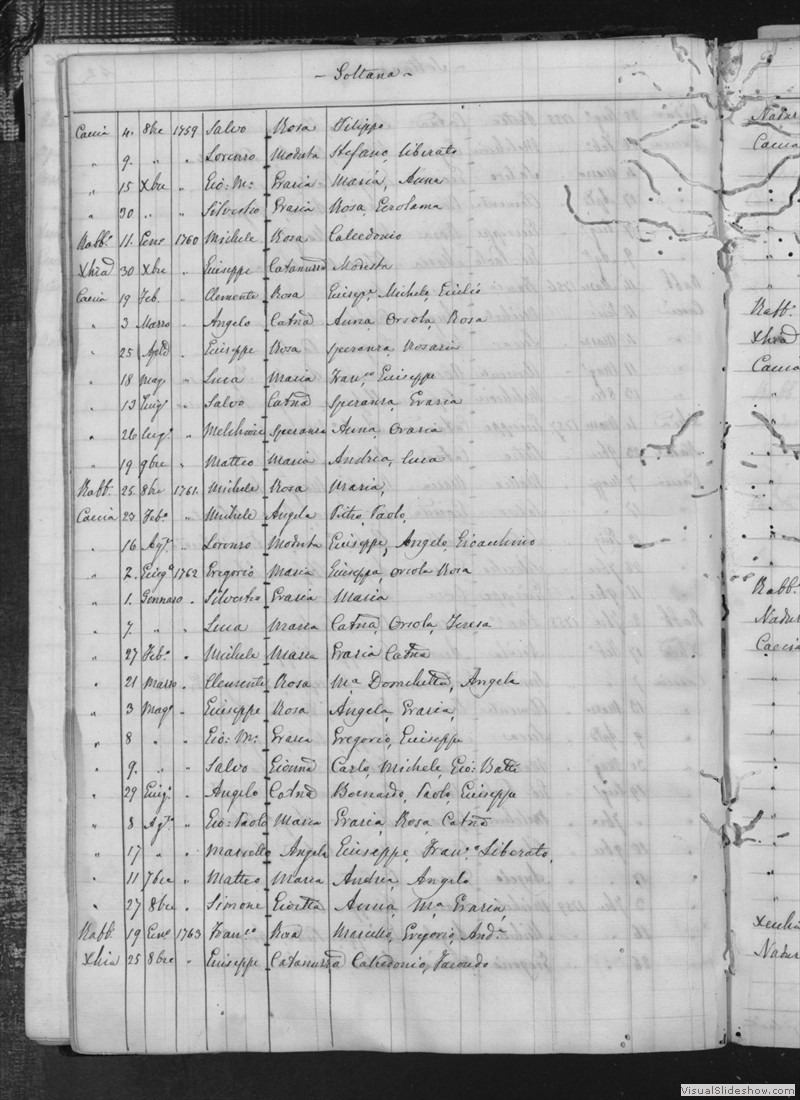 - Soltana -
Caccia 4. 8bre 1759 Salvo Rosa Filippo
" 9. " " Lorenzo Modesta Stefano, Liberato
" 15 Xbre " Gio: Ma: Grazia Maria, Anna
" 30 " " Silvestro Grazia Rosa Gerolama
Rabbo. 11. Gen. 1760 Michele Rosa Calcedonio
30 Xbre " Giuseppe Modesta
Caccia 19 Feb. " Clemente Rosa Giusepe. Michele, Giulio
" 3 Marzo " Angelo Catna Anna, Orsola, Rosa
" 25 " Giuseppe Rosa Speranza, Rosaria
" 18 Mag. " Luca Maria Franco. Giuseppe
" 13 Giug. " Salvo Catna Speranza, Grazia
" 26 Lug. " Melchiore Speranza Anna, Grazia
" 19 9bre " Matteo Maria Andrea, Luca
Rabbo. 25. 8bre 1761. Michele Rosa Maria,
Caccia 23 Febo. " Michele Angela Pietro, Paolo,
" 16 Ago. " Lorenzo Modesta Giuseppe, Angelo, Gioachino
" 2. Giugo. 1762 Gregorio Maria Giuseppa, Orsola Rosa
" 1. Gennaro " Silvestro Grazia Maria
" 7. " " Luca Maria Catna, Orsola, Teresa
" 27 Febo. " Michele Maria Grazia Catna
" 21 Marzo " Clemente Rosa Ma. Angela
" 3 Mago. " Giuseppe Rosa Angela, Grazia,
" 8 " " Gio: Ma: Grazia Gregorio, Giuseppe
" 9. " " Salvo Gionna Carlo, Michele, Gio: Batta
" 29 Giug. " Angelo Catna Bernardo, Paolo, Giuseppe
" 8 Ago. " Gio: Paolo Maria Grazia, Rosa, Catna
" 17 " " Marcello Angela Giuseppe, Franco. Liberato,
" 11 7bre " Matteo Maria Andrea, Angelo
" 27 8bre " Simone Anna, Ma. Grazia,
Rabbo. 19 Geno. 1763 Franco Rosa Marcello, Gregorio, Anda.
25 8bre " Giuseppe Calcedonio,
Nadur
Caccia
Rabbo.
Xhra
Caccia
Rabbo.
Nadur
Caccia
Nadur
VisualSlideshow.com